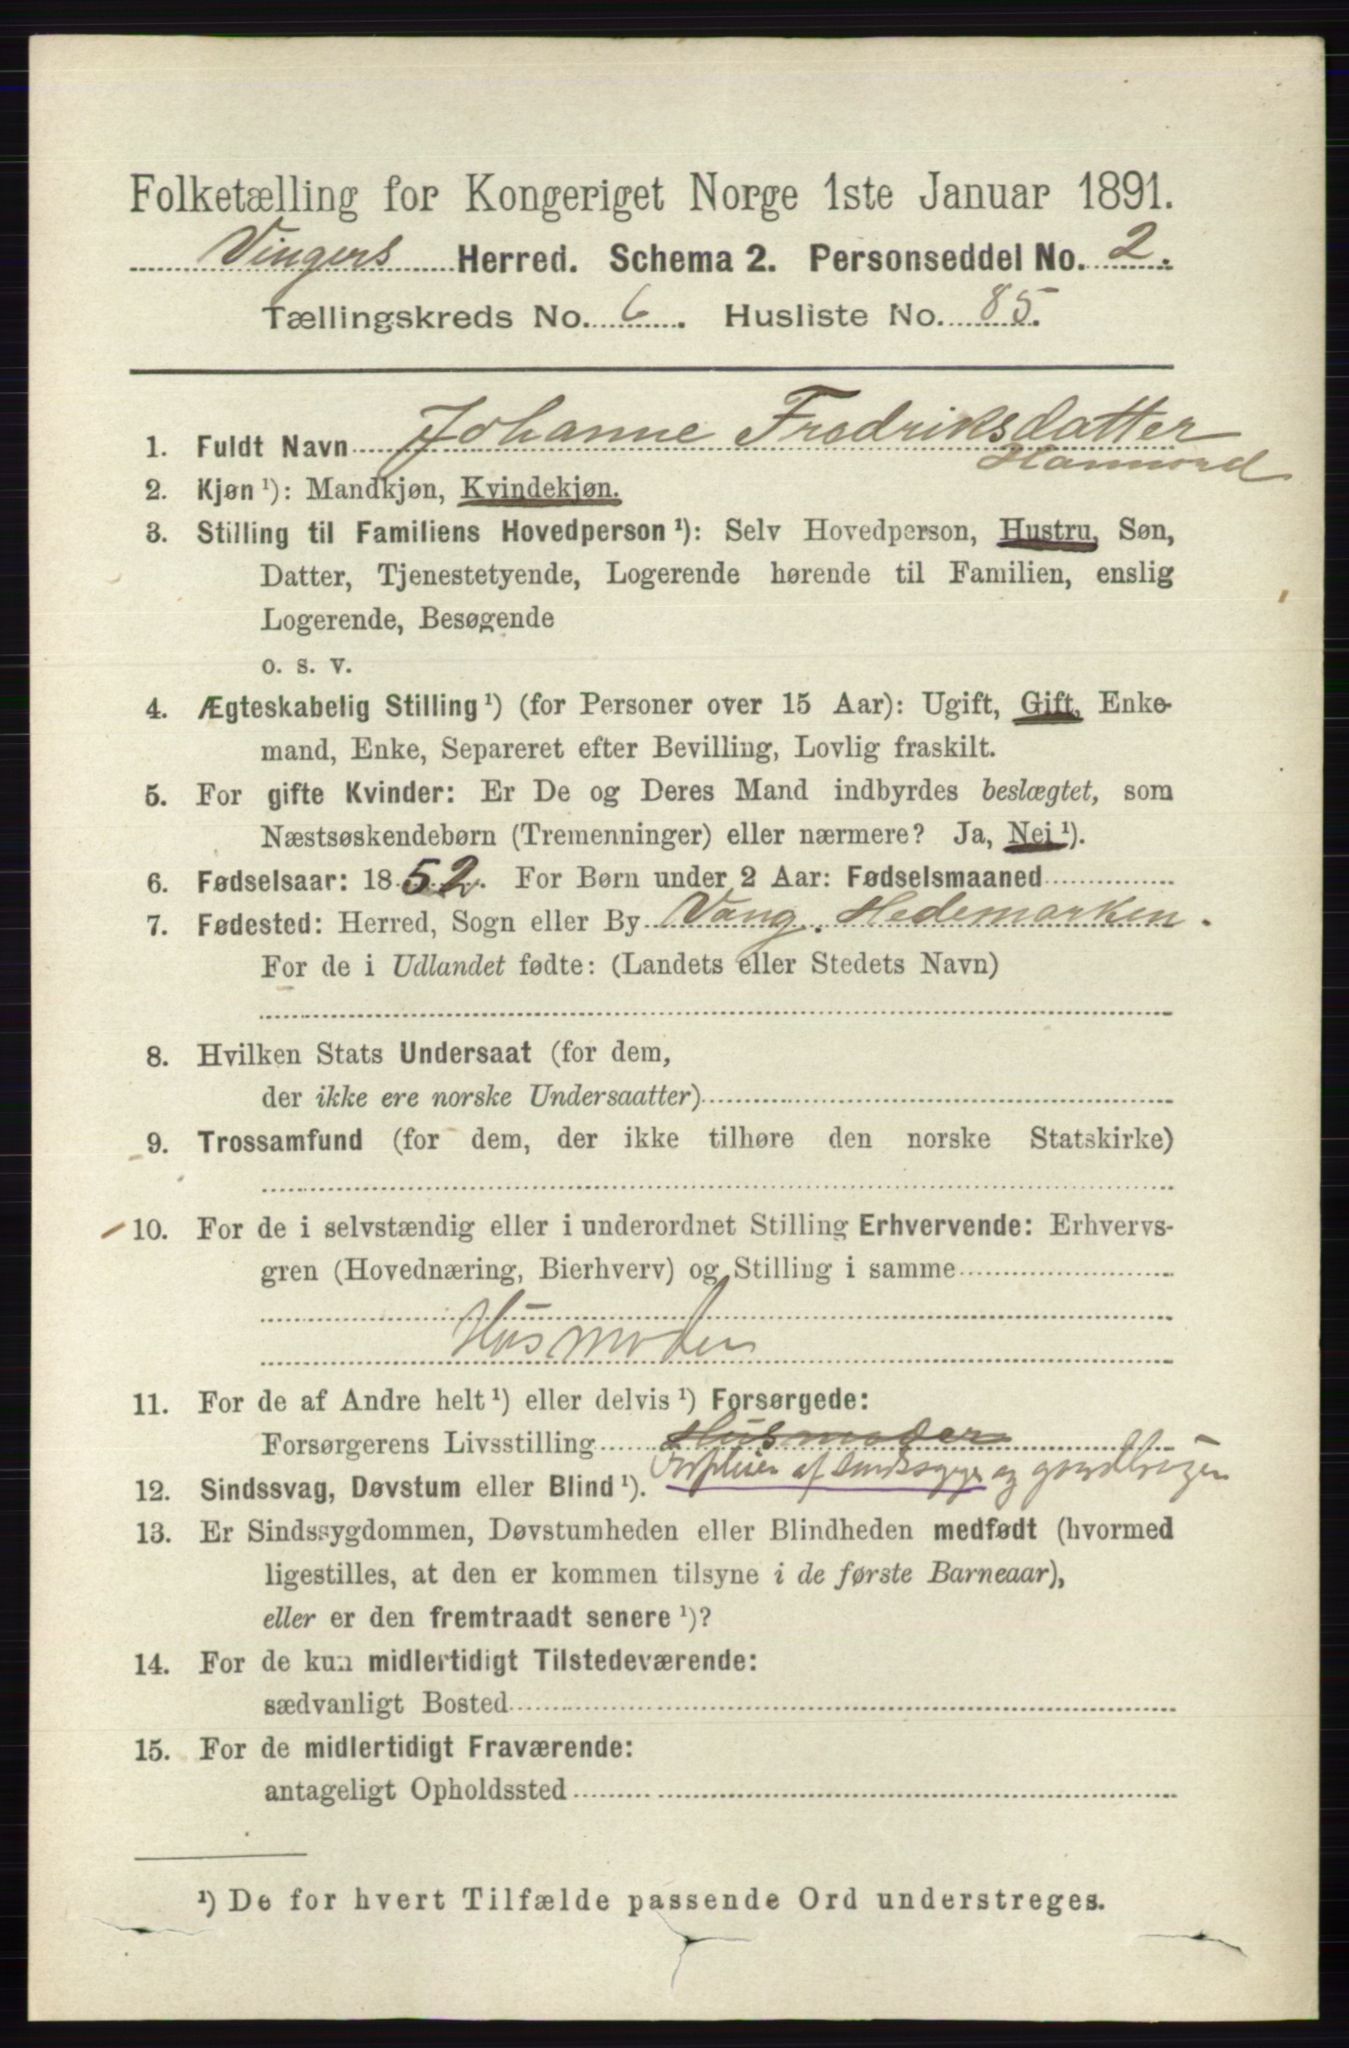 Folketælling for Kongeriget Norge 1ste Januar 1891.
Vingers Herred. Schema 2. Personseddel No. 2.
Tællingskreds No. 6. Husliste No. 85.
1. Fuldt Navn Johanne Fredriksdatter
2. Kjøn¹): Mandkjøn, Kvindekjøn.
3. Stilling til Familiens Hovedperson¹): Selv Hovedperson, Hustru, Søn,
Datter, Tjenestetyende, Logerende hørende til Familien, enslig
Logerende, Besøgende
o. s. v.
4. Ægteskabelig Stilling¹) (for Personer over 15 Aar): Ugift, Gift, Enke-
mand, Enke, Separeret efter Bevilling, Lovlig fraskilt.
5. For gifte Kvinder: Er De og Deres Mand indbyrdes beslægtet, som
Næstsøskendebørn (Tremenninger) eller nærmere? Ja, Nei¹).
6. Fødselsaar: 1852. For Børn under 2 Aar: Fødselsmaaned
7. Fødested: Herred, Sogn eller By Vang. Hedemarken.
For de i Udlandet fødte: (Landets eller Stedets Navn)
8. Hvilken Stats Undersaat (for dem,
der ikke ere norske Undersaatter)
9. Trossamfund (for dem, der ikke tilhøre den norske Statskirke)
10. For de i selvstændig eller i underordnet Stilling Erhvervende: Erhvervs-
gren (Hovednæring, Bierhverv) og Stilling i samme
Husmoder
11. For de af Andre helt¹) eller delvis¹) Forsørgede:
Forsørgerens Livsstilling Husmoder
af sindssyge og gaardbruger
12. Sindssvag, Døvstum eller Blind¹).
13. Er Sindssygdommen, Døvstumheden eller Blindheden medfødt (hvormed
ligestilles, at den er kommen tilsyne i de første Barneaar),
eller er den fremtraadt senere¹)?
14. For de kun midlertidigt Tilstedeværende:
sædvanligt Bosted
15. For de midlertidigt Fraværende:
antageligt Opholdssted
¹) De for hvert Tilfælde passende Ord understreges.